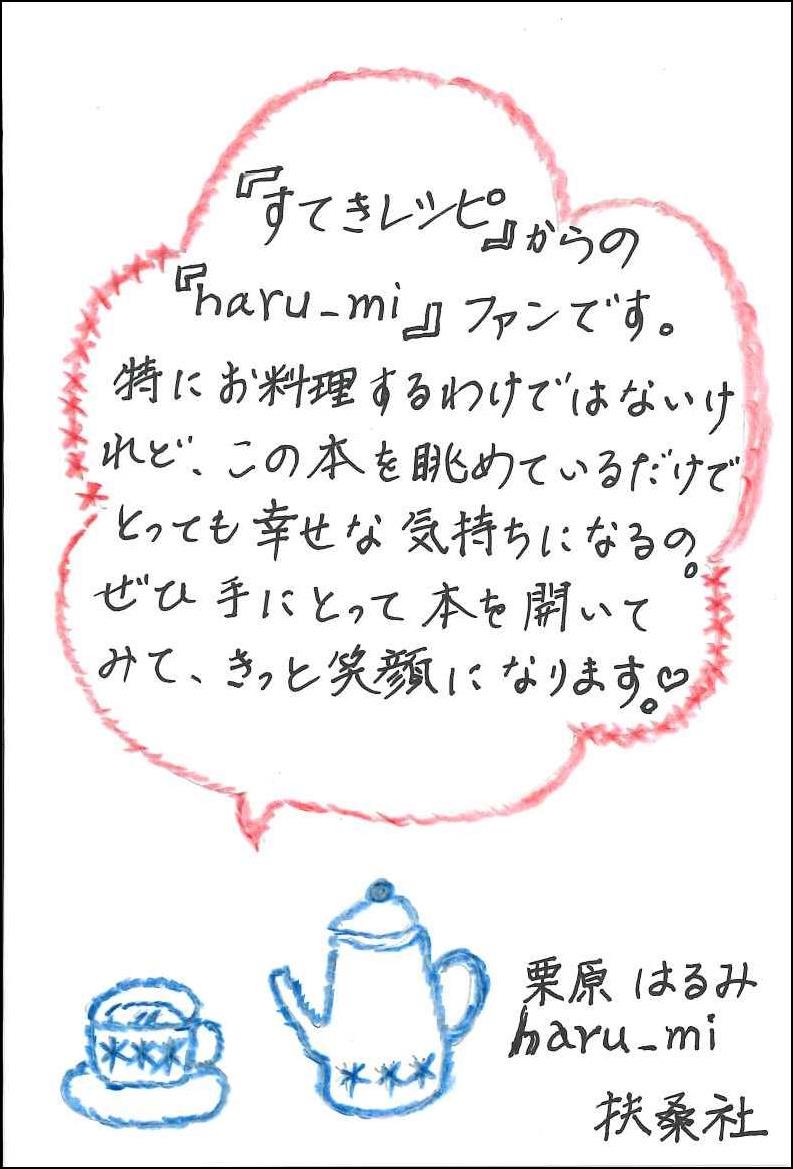 『すてきレシピ』からの
『haru_mi』ファンです。
特にお料理するわけではないけ
れど、この本を眺めているだけで
とっても幸せな気持ちになるの。
ぜひ手にとって本を開いて
みて、きっと笑顔になります。♡
栗原はるみ
haru_mi
扶桑社